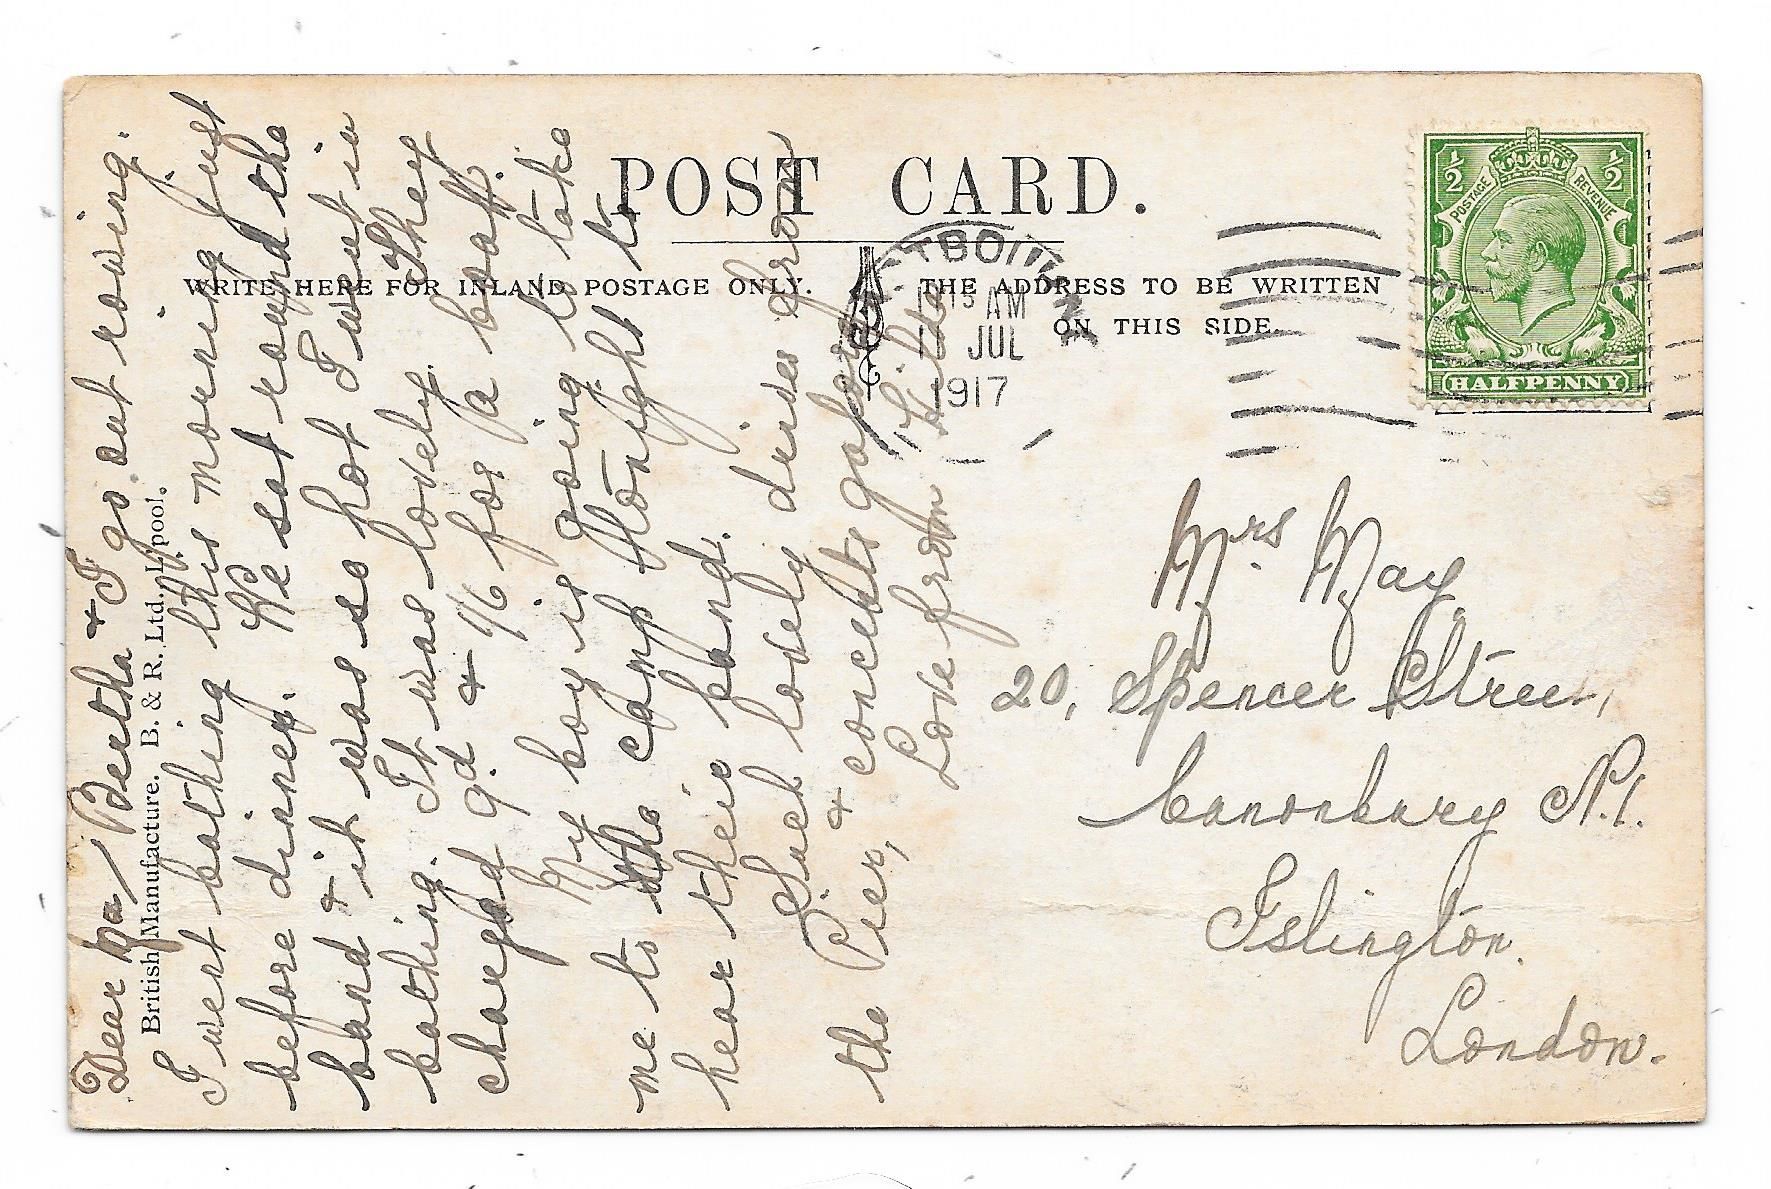 POST CARD.
WRITE HERE FOR INLAND POSTAGE ONLY.
THE ADDRESS TO BE WRITTEN
ON THIS SIDE.
British Manufacture. B. & R. Ltd., L'pool.
POSTAGE REVENUE
½ ½
HALFPENNY
15 AM
JUL
1917
Dear Ma, Bertha & I go out rowing.
I went bathing this morning just
before dinner. We sat round the
band & it was so hot I went in
bathing. It was lovely. They
charged 9d & 1/6 for a boat.
My boy is going to take
me to the camp tonight to
hear their band.
Such lovely drives from
the Pier, & concerts galore.
Love from Hilda
Mrs May,
20, Spencer Street,
Canonbury N.1.
Islington.
London.